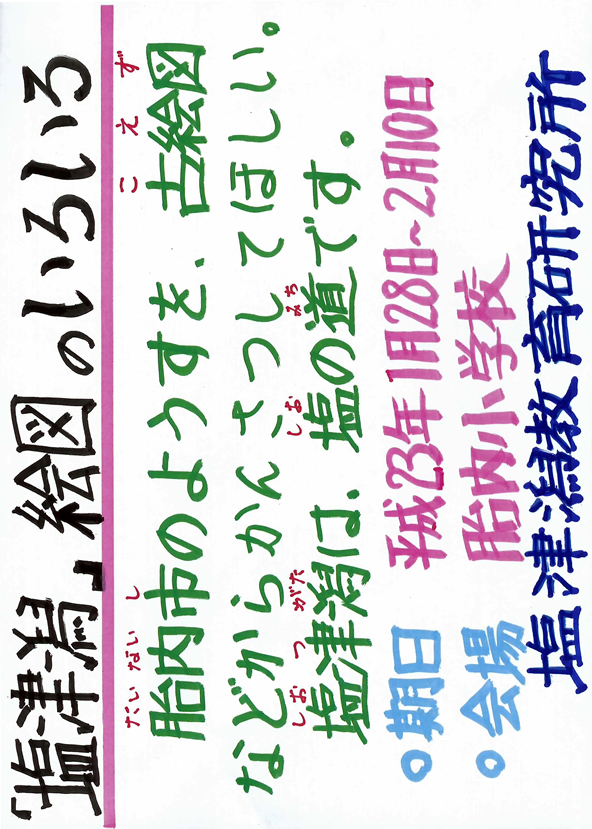 「塩津潟」絵図のいろいろ
たい ない し こ え ず
胎内市のようすを、古絵図
などからかんさつしてほしい。
しお つ がた しお みち
塩津潟は、塩の道です。
○期日 平成23年1月28日~2月10日
○会場 胎内小学校
塩津潟教育研究所